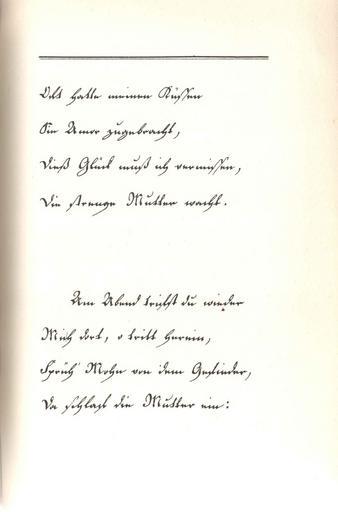 Oft hatte meinen Küssen
Sie Amor zugebracht,
Dieß Glück muß ich vermissen,
Die strenge Mutter wacht.
Am Abend triffst du wieder
Mich dort, o tritt herein,
Sprüh' Mohn von dem Gefieder,
Da schlaft die Mutter ein: